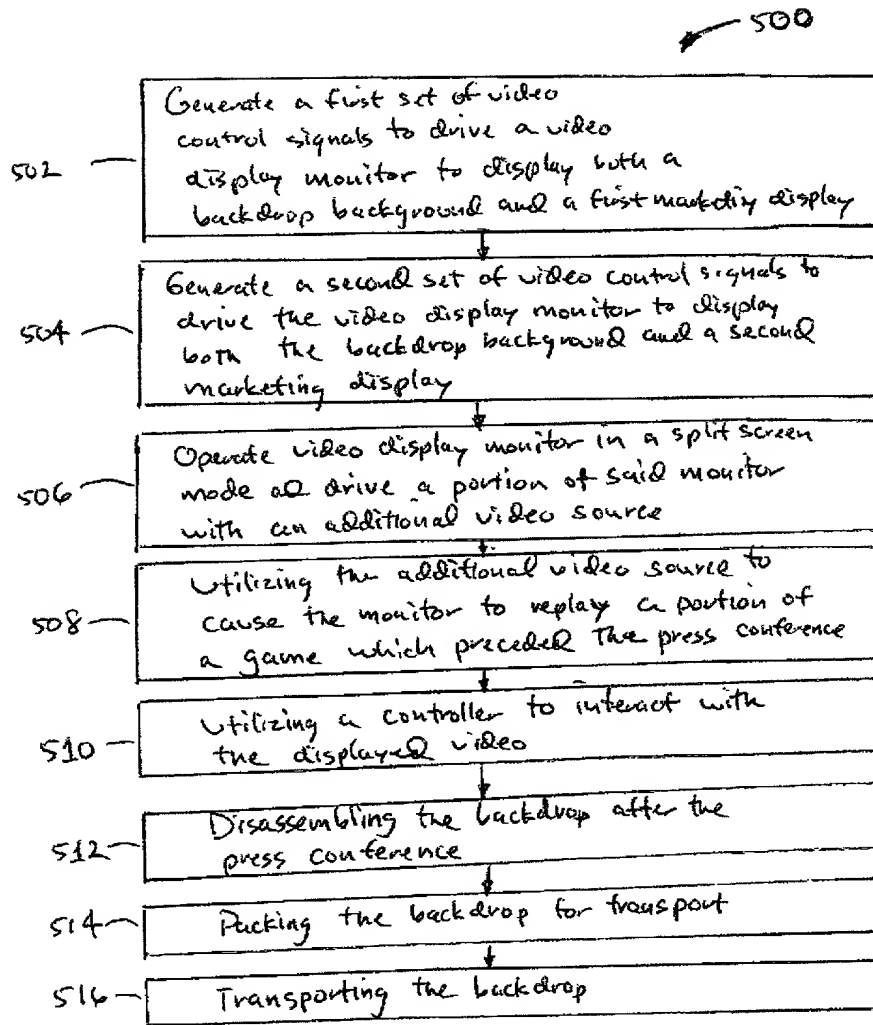 500
502
Generate a first set of video
control signals to drive a video
display monitor to display both a
backdrop background and a first marketiy display
504
Generate a second set of video control signals to
drive the video display monitor to display
both the backdrop background and a second
marketing display
506
Operate video display monitor in a split screen
mode ad drive a portion of said monitor
with an additional video source
508
Utilizing the additional video source to
cause the monitor to replay a portion of
a game which preceded the press conference
510
Utilizing a controller to interact with
the displayed video
512
Disassembling the backdrop after the
press conference
514
Packing the backdrop for transport
516
Transporting the backdrop